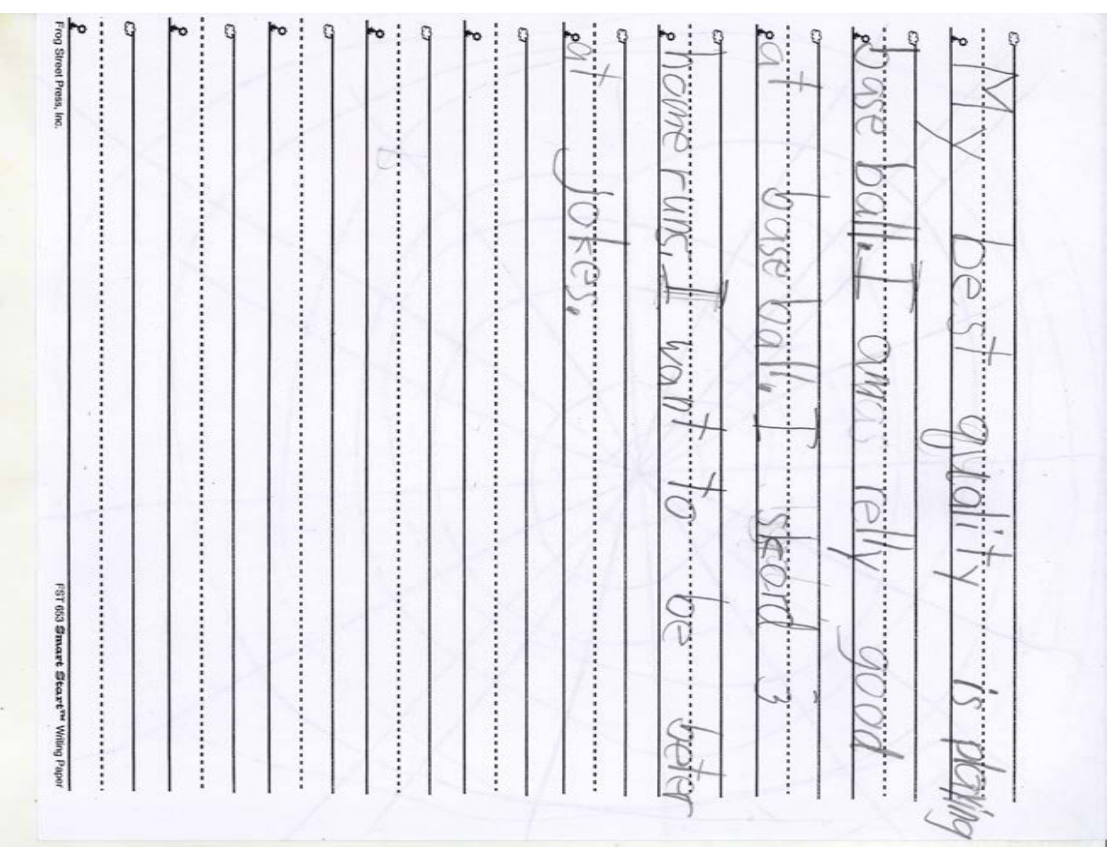 My best quality is playing
baseball. I am relly good
at baseball. I skord 3
home runs. I want to be beter
at jokes.
Frog Street Press, Inc.
FST 653 Smart Start™ Writing Paper